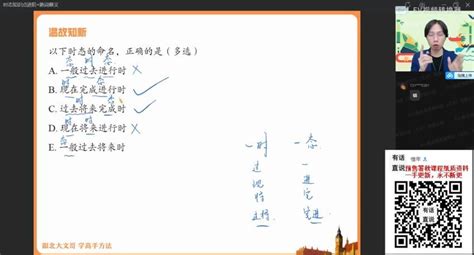 温故知新
以下时态的命名，正确的是（多选）
态 时 态
A. 一般过去进行时
时 态
B. 现在完成进行时
时 态
C. 过去将来完成时
时 时
D. 现在将来进行时
E. 一般过去将来时
时 态
过 一
现 进
将 完
过将 完进
跟北大文哥 学高手方法
有话
直说
预售暑秋课程版质资料
一手更新，永不断更
有话
直说